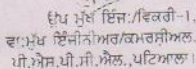 ਉਪ ਮੁੱਖ ਇੰਜ:/ਵਿਕਰੀ-1,
ਵਾ:ਮੁੱਖ ਇੰਜੀਨੀਅਰ/ਕਮਰਸ਼ੀਅਲ,
ਪੀ.ਐਸ.ਪੀ.ਸੀ.ਐਲ.,ਪਟਿਆਲਾ